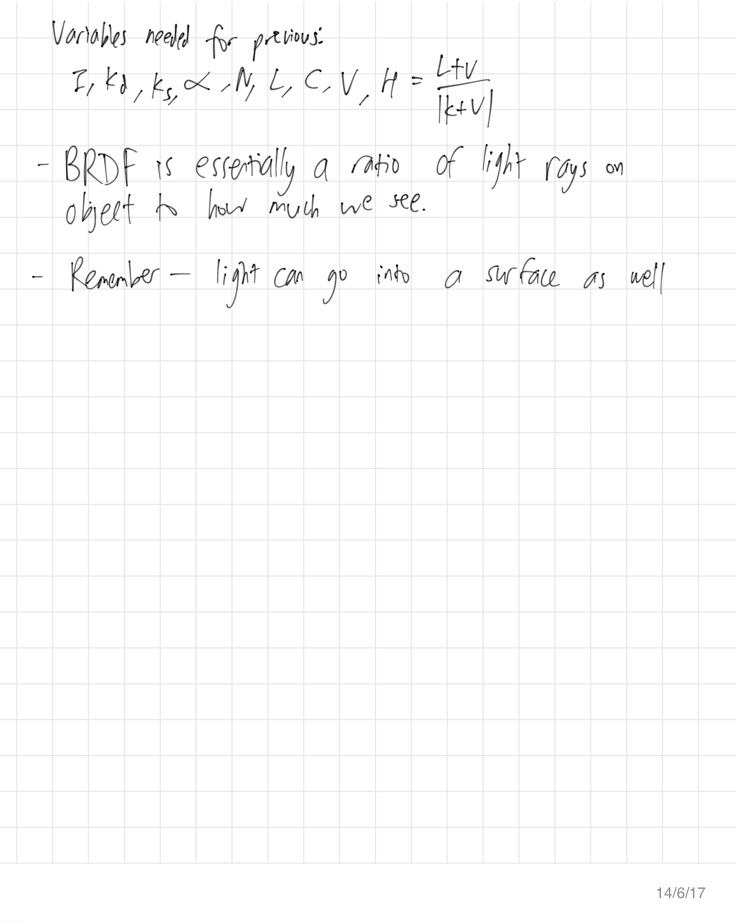 Variables needed for previous:
I, kd, ks, α, N, L, C, V, H = L+V / |k+V|
- BRDF is essentially a ratio of light rays on
object to how much we see.
- Remember - light can go into a surface as well
14/6/17